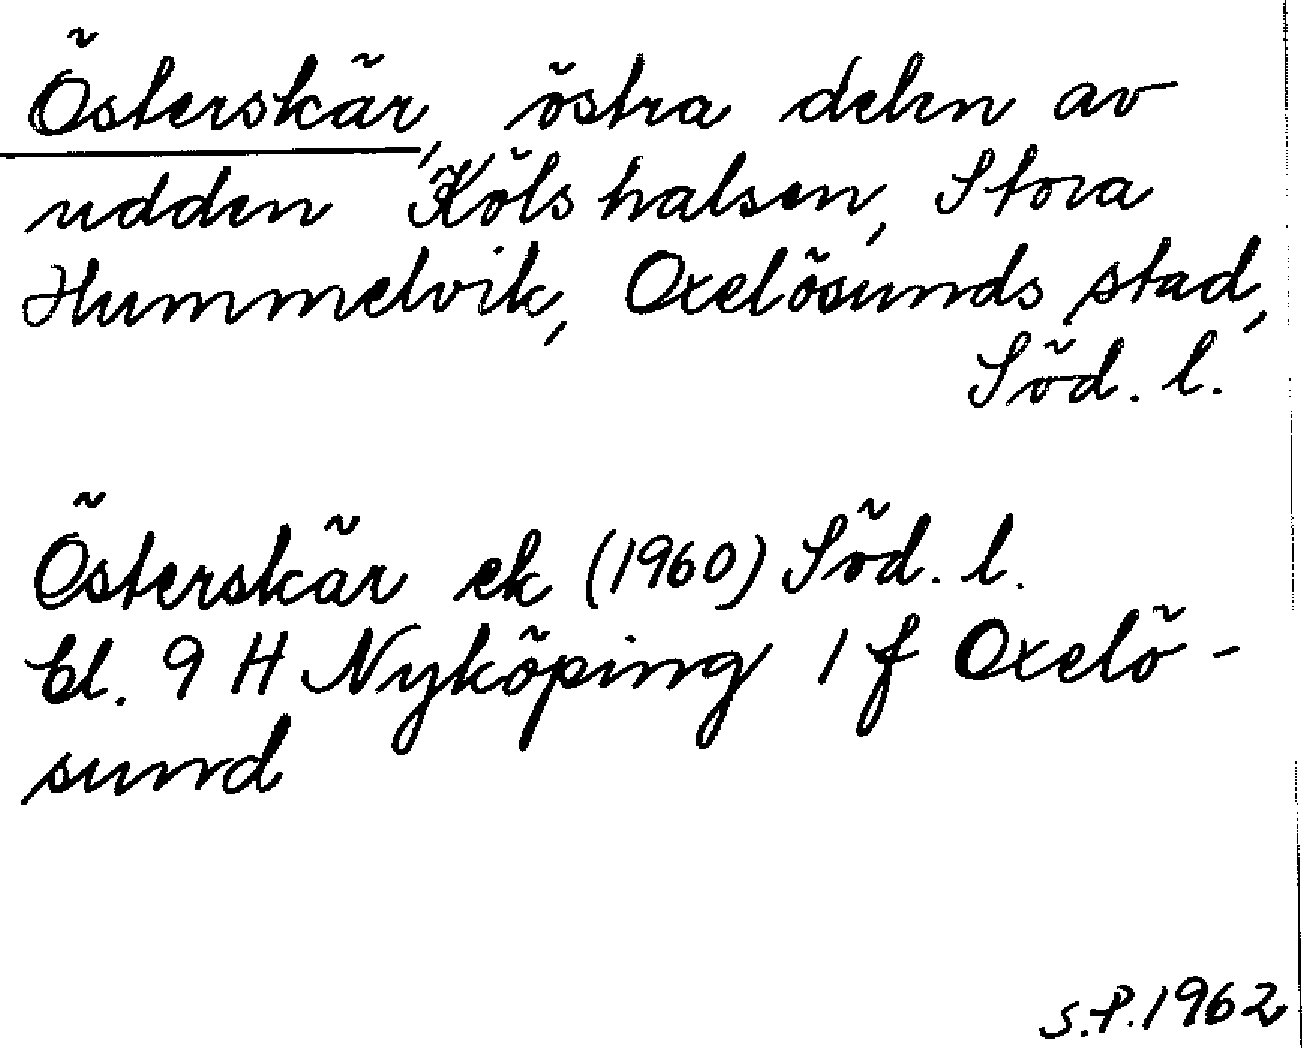 Österskär, östra delen av
udden Kölshalsen, Stora
Hummelvik, Oxelösunds stad,
Söd. l.
Österskär ek (1960) Söd. l.
bl. 9 H Nyköping 1 f Oxelö-
sund
S.P. 1962